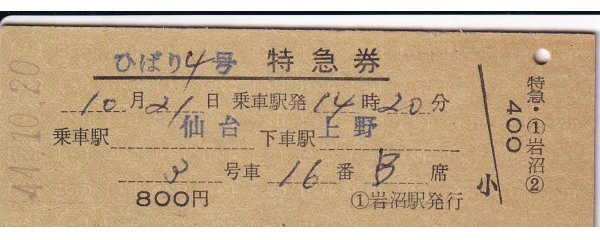 ひばり4号 特急券
10月21日 乗車駅発14時20分
乗車駅 仙台 下車駅 上野
3号車 16番 B席
800円 ①岩沼駅発行
小
特急・①岩沼②
400